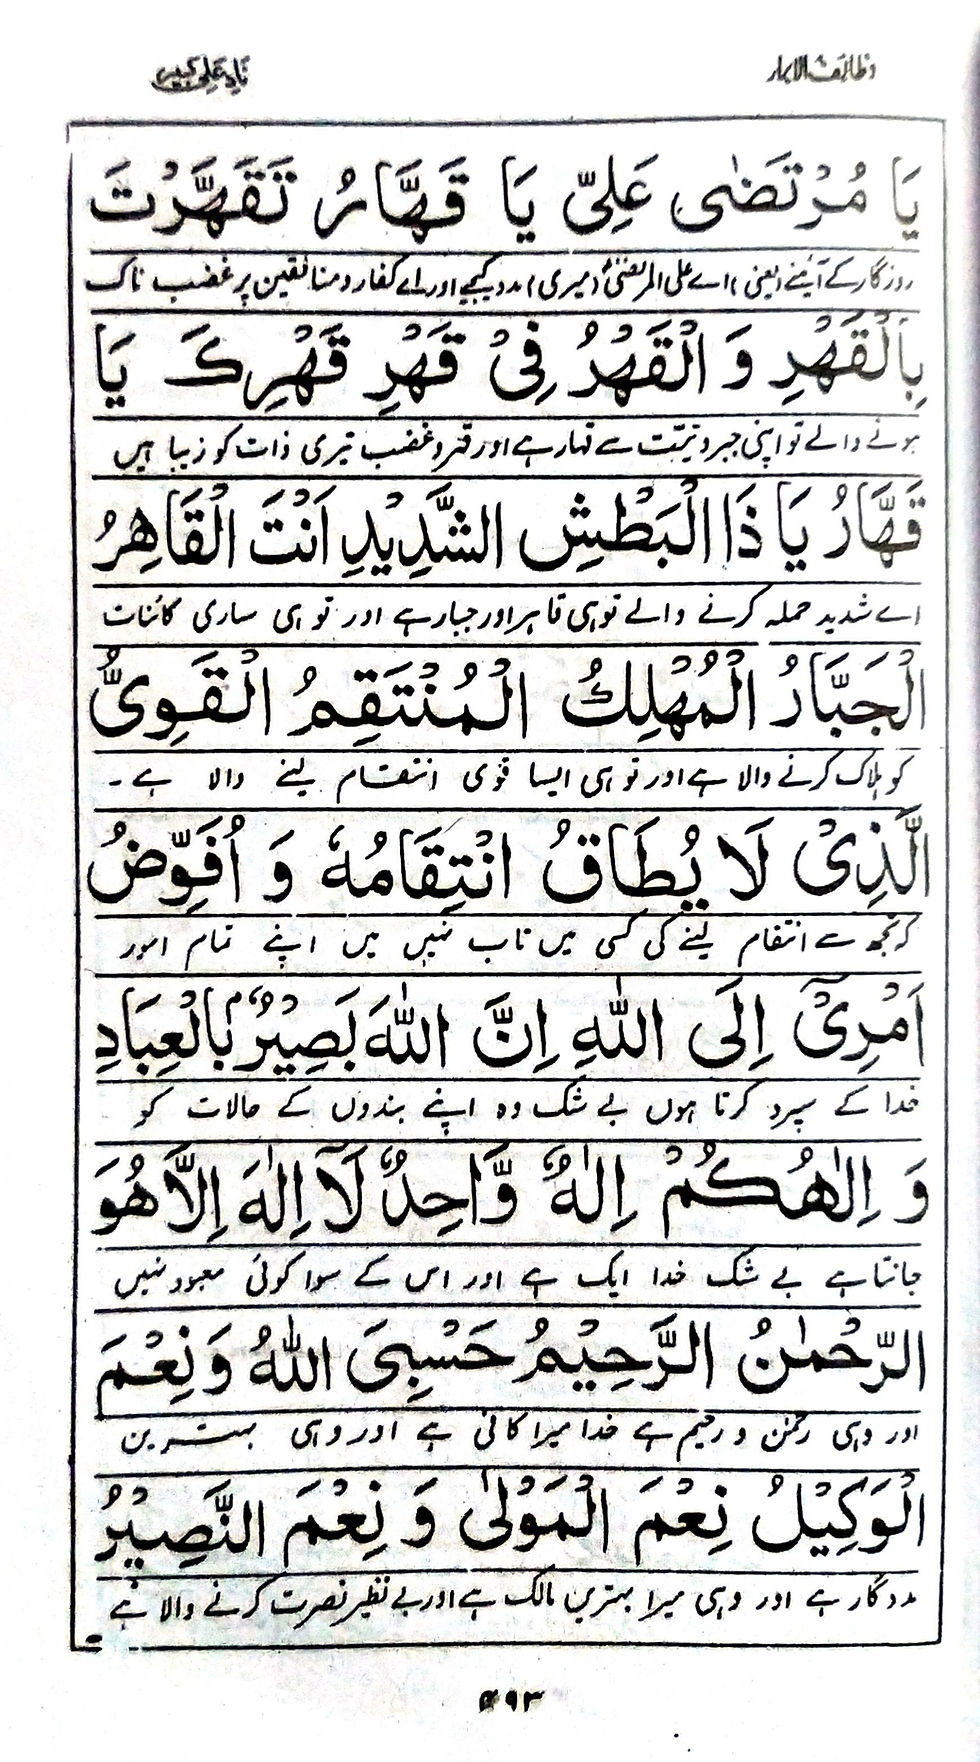 وظائف الابرار
نادِ علی کبیر
یَا مُرْتَضٰی عَلِیُّ یَا قَهَّارُ تَقَهَّرْتَ
روزگار کے آئینے (یعنی) اے علی المرتضیٰؑ (میری) مدد کیجیے اور اے کفار و منافقین پر غضب ناک
بِالْقَهْرِ وَ الْقَهْرُ فِیْ قَهْرِ قَهْرِكَ یَا
ہونے والے تو اپنی جبر و تیمت سے قہار ہے اور قہر و غضب تیری ذات کو زیبا ہیں
قَهَّارُ یَا ذَا الْبَطْشِ الشَّدِیْدِ اَنْتَ الْقَاهِرُ
اے شدید حملہ کرنے والے تو ہی قاہر اور جبار ہے اور تو ہی ساری کائنات
الْجَبَّارُ الْمُهْلِكُ الْمُنْتَقِمُ الْقَوِیُّ
کو ہلاک کرنے والا ہے اور تو ہی ایسا قوی انتقام لینے والا ہے۔
الَّذِیْ لَا یُطَاقُ انْتِقَامُهٗ وَ اُفَوِّضُ
کہ تجھ سے انتقام لینے کی کسی میں تاب نہیں میں اپنے تمام امور
اَمْرِیْۤ اِلَی اللّٰهِ اِنَّ اللّٰهَ بَصِیْرٌۢ بِالْعِبَادِ
خدا کے سپرد کرتا ہوں بے شک وہ اپنے بندوں کے حالات کو
وَ اِلٰهُكُمْ اِلٰهٌ وَّاحِدٌ لَاۤ اِلٰهَ اِلَّا هُوَ
جانتا ہے بے شک خدا ایک ہے اور اس کے سوا کوئی معبود نہیں
الرَّحْمٰنُ الرَّحِیْمُ حَسْبِیَ اللّٰهُ وَ نِعْمَ
اور وہی رحمٰن و رحیم ہے خدا میرا کافی ہے اور وہی بہترین
الْوَكِیْلُ نِعْمَ الْمَوْلٰی وَ نِعْمَ النَّصِیْرُ
مددگار ہے اور وہی میرا بہترین مالک ہے اور بے نظیر نصرت کرنے والا ہے
۹۳